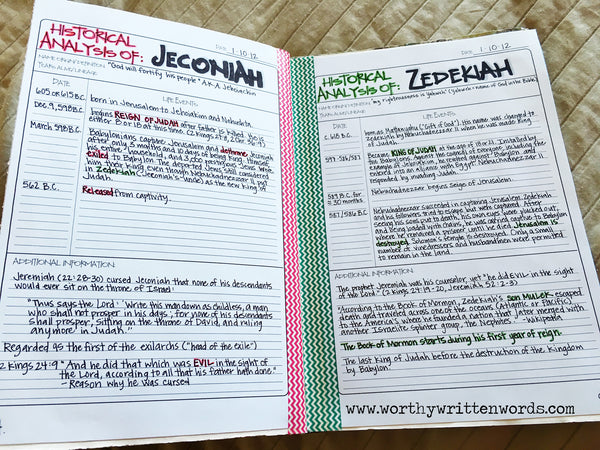 HISTORICAL
ANALYSIS OF: JECONIAH
DATE 1-10-12
"God will fortify his people" A.K.A. Jehoiachin
DATE
LIFE EVENTS
605 or 615 B.C.
born in Jerusalem to Jehoiakim and Nehushta
Dec. 9, 598 B.C.
begins REIGN OF JUDAH after father is killed. He is
either 8 or 18 at this time. (2 Kings 24:8-9, 2 Chr. 36:9)
March 598 B.C.
Babylonians capture Jerusalem and dethrone Jeconiah
after only 3 months and 10 days of being king. Himself,
his entire household, and 3,000 prestigious Jews were
exiled to Babylon. The deported Jews still considered
him their king even though Nebuchadnezzar II put
in Zedekiah (Jeconiah's uncle) as the new king of
Judah.
562 B.C.
Released from captivity.
ADDITIONAL INFORMATION
Jeremiah (22:28-30) cursed Jeconiah that none of his descendants
would ever sit on the throne of Israel:
"Thus says the Lord: 'Write this man down as childless, a man
who shall not prosper in his days; for none of his descendants
shall prosper, sitting on the throne of David, and ruling
anymore in Judah.'"
Regarded as the first of the exilarchs ("head of the exile")
2 Kings 24:9 "And he did that which was EVIL in the sight of
the Lord, according to all that his father hath done."
- Reason why he was cursed
HISTORICAL
ANALYSIS OF: ZEDEKIAH
DATE 1-10-12
"my righteousness is Yahweh" (Yahweh = name of God in the Bible)
DATE
LIFE EVENTS
C. 618 B.C.
born as Mattanyahu ("Gift of God"). His name was changed to
Zedekiah by Nebuchadnezzar II when he was made King
of Jerusalem.
597-586/587
Became KING OF JUDAH at the age of 18 or 21. Initiated by
the Babylonians. Against the counsel of everyone, including the
example of Jeconiah, he revolted against Babylon and
entered into an alliance with Egypt. Nebuchadnezzar II
responded by invading Judah.
589 B.C. for
30 months
Nebuchadnezzar begins Seige of Jerusalem.
587/586 B.C.
Nebuchadnezzar succeeded in capturing Jerusalem. Zedekiah
and his followers tried to escape but were captured. After
seeing his sons put to death, his own eyes were plucked out,
and being loaded with chains, he was carried captive to Babylon
where he remained a prisoner until he died. Jerusalem is
destroyed. Solomon's temple is destroyed. Only a small
number of vinedressers and husbandmen were permitted
to remain in the land.
ADDITIONAL INFORMATION
The prophet Jeremiah was his counselor, yet "he did EVIL in the sight
of the Lord" (2 Kings 24:19-20, Jeremiah 52:2-3)
"According to the Book of Mormon, Zedekiah's son MULEK escaped
death and traveled across one of the oceans (Atlantic or Pacific)
to the America's, where he founded a nation that later merged with
another Israelite splinter group, the Nephites." -Wikipedia
The Book of Mormon starts during his first year of reign.
The last king of Judah before the destruction of the Kingdom
by Babylon.
www.worthywrittenwords.com